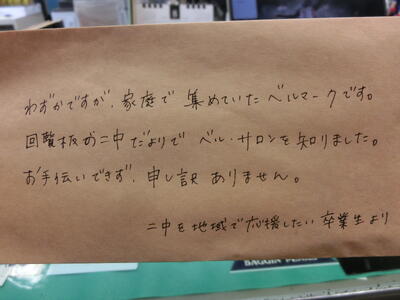 わずかですが、家庭で集めていたベルマークです。
回覧板が二中だよりでベル・サロンを知りました。
お手伝いできず、申し訳ありません。
二中を地域で応援したい卒業生より